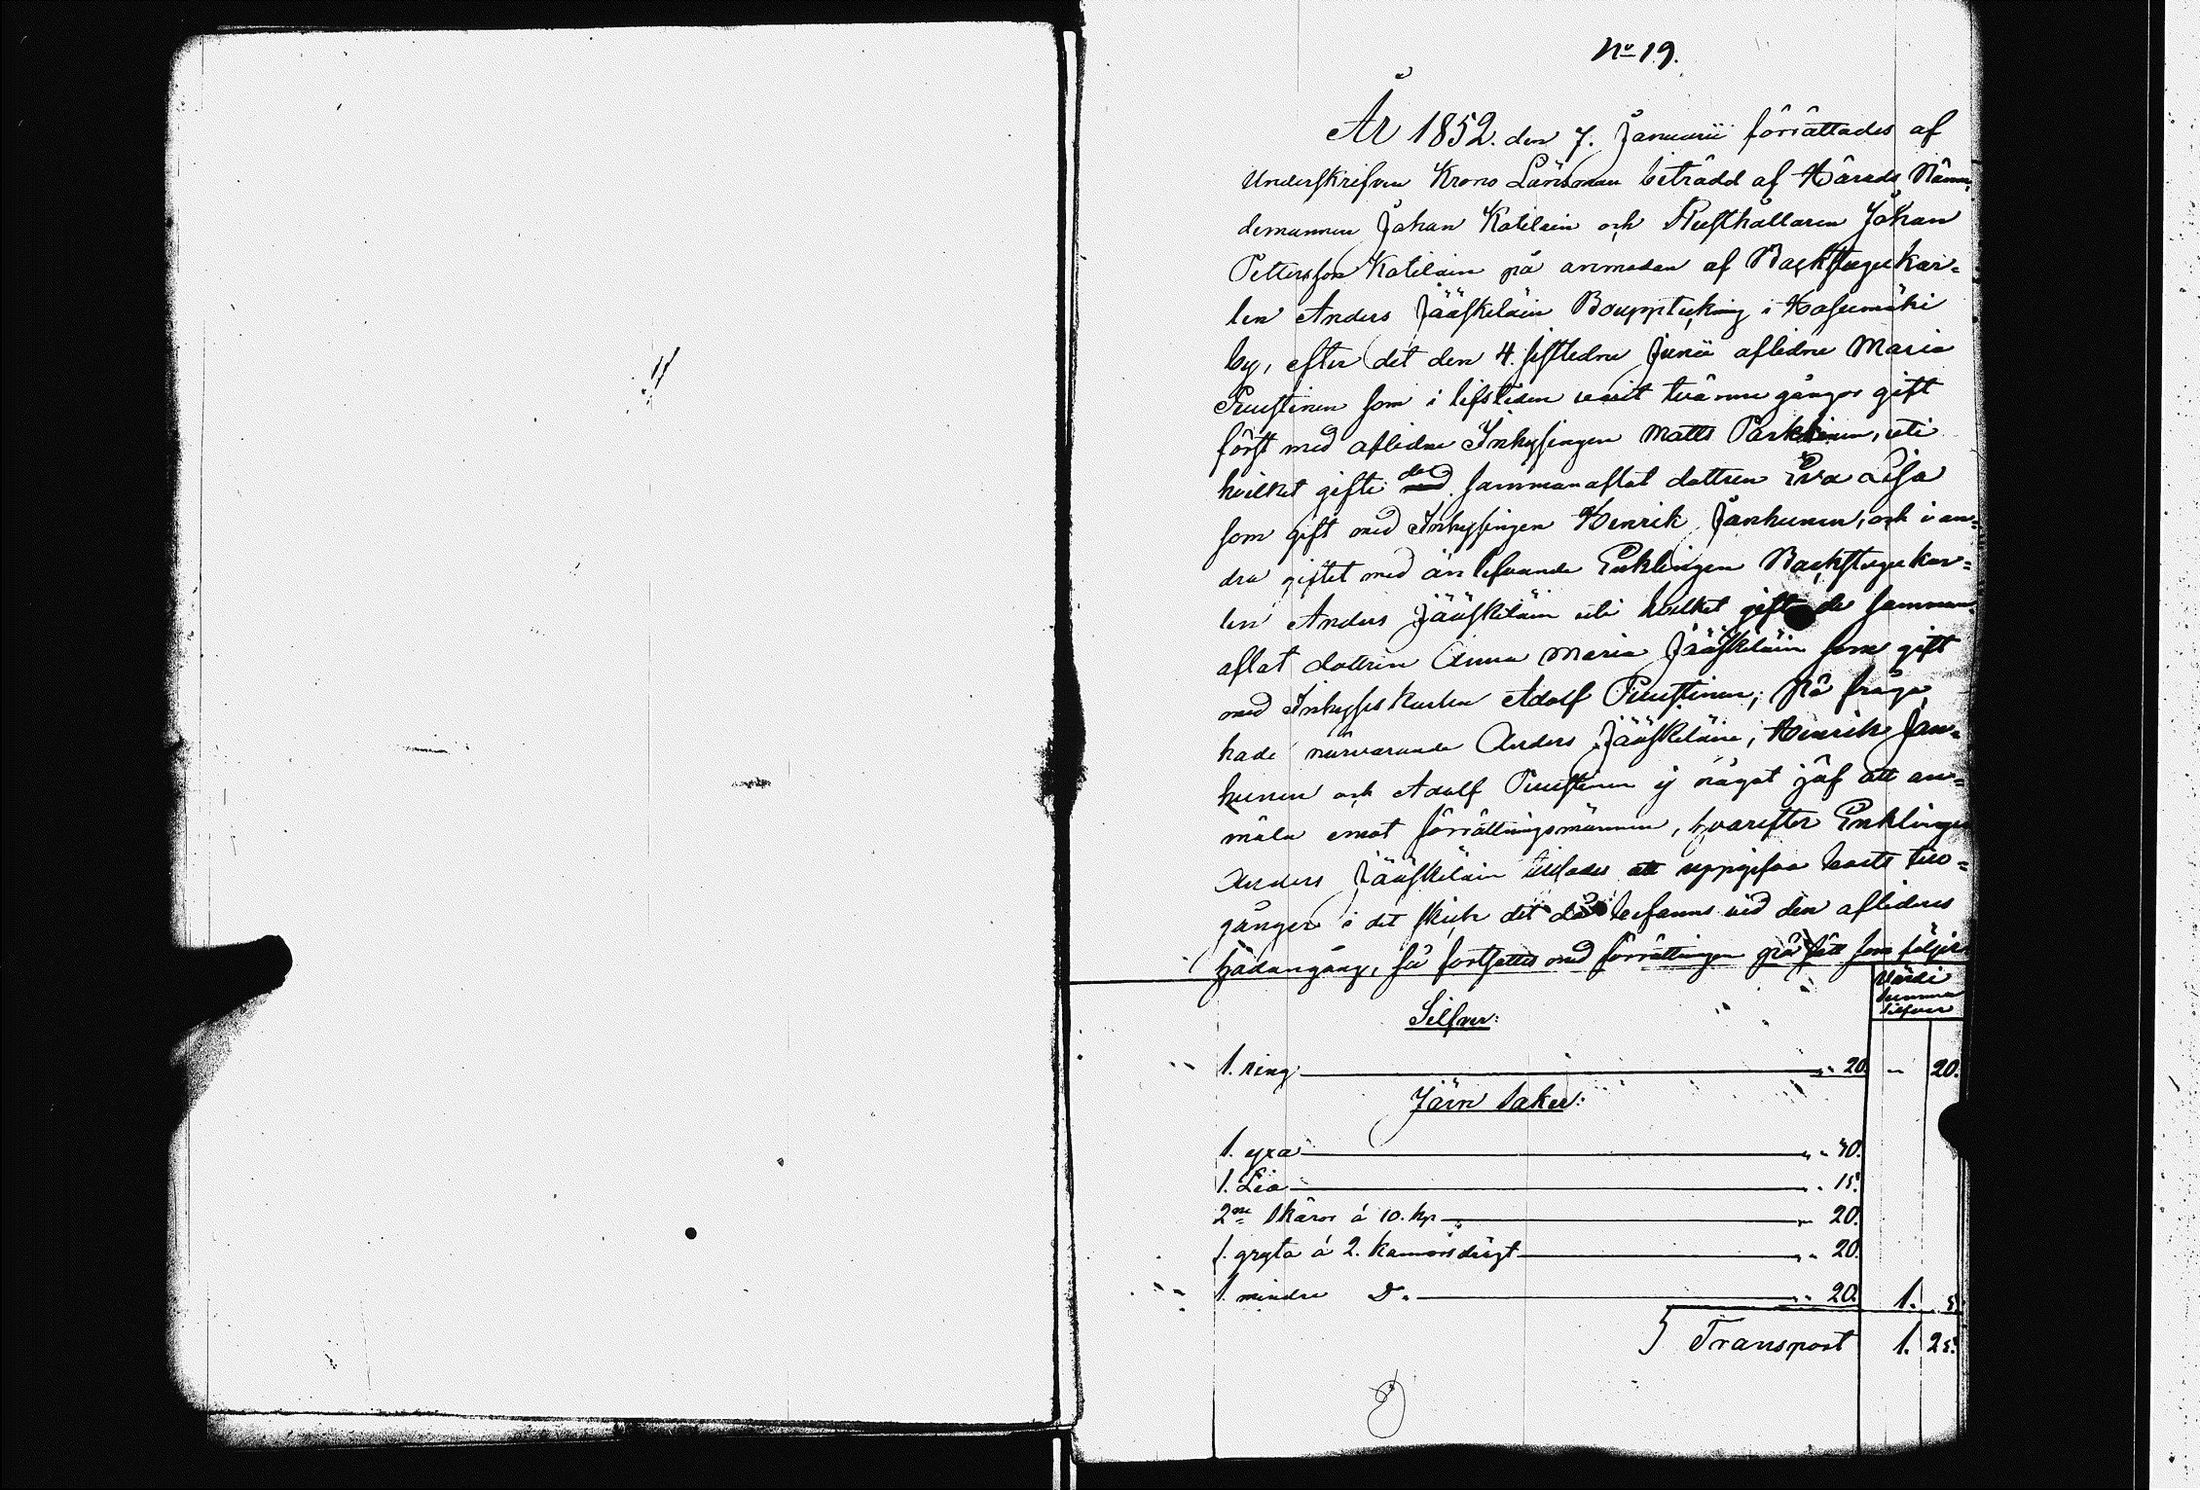 No 19.
År 1852. den 7. Januarii förrättades af
Underskrifven Krono Länsman biträdd af Härads Nämn,
demannen Johan Katilain och Rusthållaren Johan
Pettersson Katilain på anmodan af Backstugukar=
len Anders Jääskeläin Bouppteckning i Hasumäki
by, efter det den 4. sistledne Junii aflidne Maria
Puustinen som i lifstiden varit tvänne gånger gift
först med aflidne Inhysingen Matts Parkkinen, uti
hvilket gifte de sammanaflat dottren Eva Lisa
som gift med Inhysingen Henrik Jankunen, och i an=
dra giftet med än lefvande Enklingen Backstugukar=
len Anders Jääskeläin uti hvilket gifte de samman
aflat dottren Anna Maria Jääskeläin som gift
med Inhyses Karlen Adolf Puustinen; På fråga
hade närvarande Anders Jääskeläin, Henrik Jan=
kunen och Adolf Puustinen ej något jäf att an=
mäla emot förrättningsmännen, hvarefter Enklingen
Anders Jääskeläin tillsades att uppgifva boets till=
gångar i det skick det då befanns vid den aflidnes
hädangång, så fortsattes med förrättningen på sätt som följer
Värde
Summa
Silfver
Silfver:
1. ring „ „ 20. – 20.
Järn saker:
1. yxa „ „ 30.
1. Lia „ „ 15.
2ne Skäror á 10. kp „ „ 20.
1. gryta á 2. kannors drägt „ „ 20.
1. mindre D:o „ „ 20. 1. 5.
Transport 1. 25.